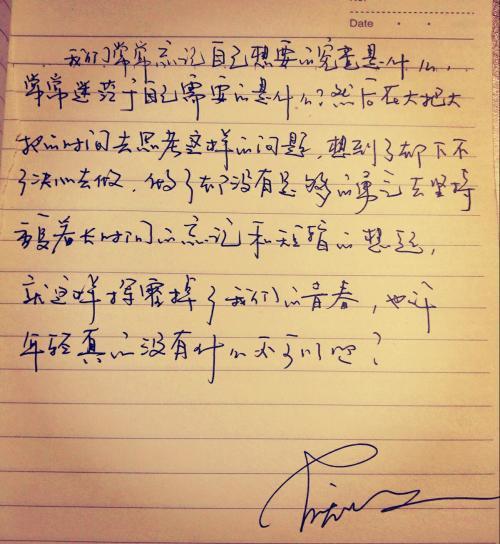 Date
我们常常忘记自己想要的究竟是什么,
常常迷茫于自己需要的是什么?然后在大把大
把的时间去思考这样的问题,想到了却下不
了决心去做,做了却没有足够的勇气去坚持
复着长时间的忘记和短暂的想起,
就这样挥霍掉了我们的青春,也许
年轻真的没有什么不可以吧?